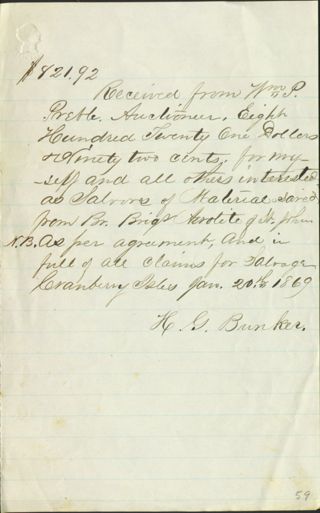 $821.92
Received from Wm P.
Preble. Auctioneer. Eight
Hundred Twenty One Dollars
& Ninety two cents, for my
self and all others interested
as Salvors of Material saved
from Br. Brig of St John
N.B. As per agreement, And in
full of all claims for Salvage
Cranberry Isles Jan. 20th 1869
H. G. Bunker.
59